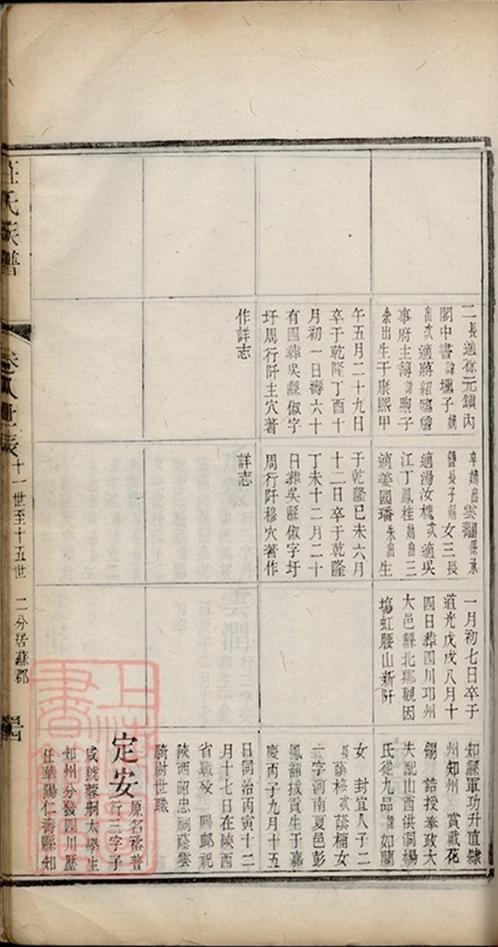 二長適徐元鎮內
閣中書諱壎子嫡
出次適蔣紹臨詹
事府主簿諱子
余出生于康熙甲
午五月二十九日
卒于乾隆丁酉十
月初一日壽六十
有四葬吳縣俶字
圩周行阡主穴著
作詳志
卒嫡出雲係承
嗣長子嗣女三長
適湯汝槐次適吳
江丁鳳桂嫡出三
適姜國璠朱出生
于乾隆己未六月
十二日卒于乾隆
丁未十二月二十
日葬吳縣俶字圩
周行阡穆穴著作
詳志
一月初七日卒于
道光戊戌八月十
四日葬四川邛州
大邑縣北鄉觀因
塲虹腰山新阡
知縣軍功升直隸
州知州 賞戴花
翎 誥授奉政大
夫配山西洪洞楊
氏從九品諱如蘭
女 封宜人子二
長蔭椿次蔭楠女
一字河南夏邑彭
鳳韶拔貢生于嘉
慶丙子九月十五
日同治丙寅十二
月十七日在陝西
省職故縣鄉祀
陝西昭忠祠蔭雲
騎尉世職
定安 原名裕普
行二字子
咸號蓉洲太學生
知州分發四川歷
任華陽仁壽縣知
氏族譜
卷八世表 十一世至十五世 二分居蘇郡